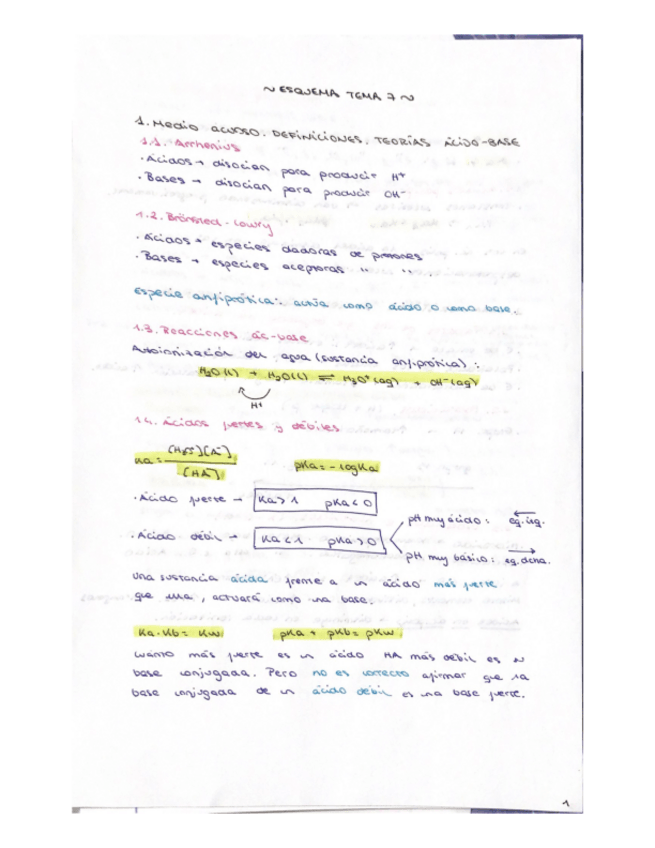 ~ ESQUEMA TEMA 7 ~
1. Medio acuoso. DEFINICIONES. TEORÍAS ÁCIDO-BASE
1.1. Arrhenius
· Ácidos → disocian para producir H⁺
· Bases → disocian para producir OH⁻
1.2. Brönsted-Lowry
· Ácidos → especies dadoras de protones
· Bases → especies aceptoras " "
Especie anfiprótica: actúa como ácido o como base.
1.3. Reacciones ác-base
Autoionización del agua (sustancia anfiprótica):
H₂O(l) + H₂O(l) ⇌ H₃O⁺(aq) + OH⁻(aq)
H⁺
1.4. Ácidos fuertes y débiles
Ka = [H₃O⁺][A⁻] / [HA]   pKa = -log Ka
· Ácido fuerte → Ka > 1   pKa < 0
· Ácido débil → Ka < 1   pKa > 0
pH muy ácido: eq. izq.
pH muy básico: eq. dcha.
Una sustancia ácida frente a un ácido más fuerte
que ella, actuará como una base.
Ka · Kb = Kw   pKa + pKb = pKw
Cuanto más fuerte es un ácido HA más débil es su
base conjugada. Pero no es correcto afirmar que la
base conjugada de un ácido débil es una base fuerte.
1